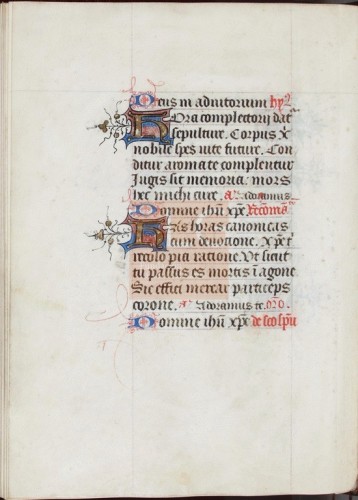 Deus in adiutorium hy
Hora completorij dat
sepulture. Corpus xp
nobile spes vite future. Con
ditur aromate complentur
Iugis sit memoria mors
hec michi cure. a Adoramus
Domine ihu xpe
His horas canonicas
cum deuotione. xpe ti
recolo pia ratione. Vt sicut
tu passus es mortis i agone
Sic effici merear particeps
corone. a Adoramus te. oro.
Domine ihu xpe